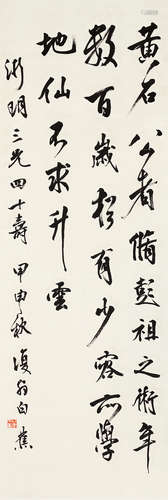 黄石公者脩彭祖之術年
数百歲猶有少容亦學
地仙不求升雲
淅明三兄四十壽 甲申秋 復翁白蕉